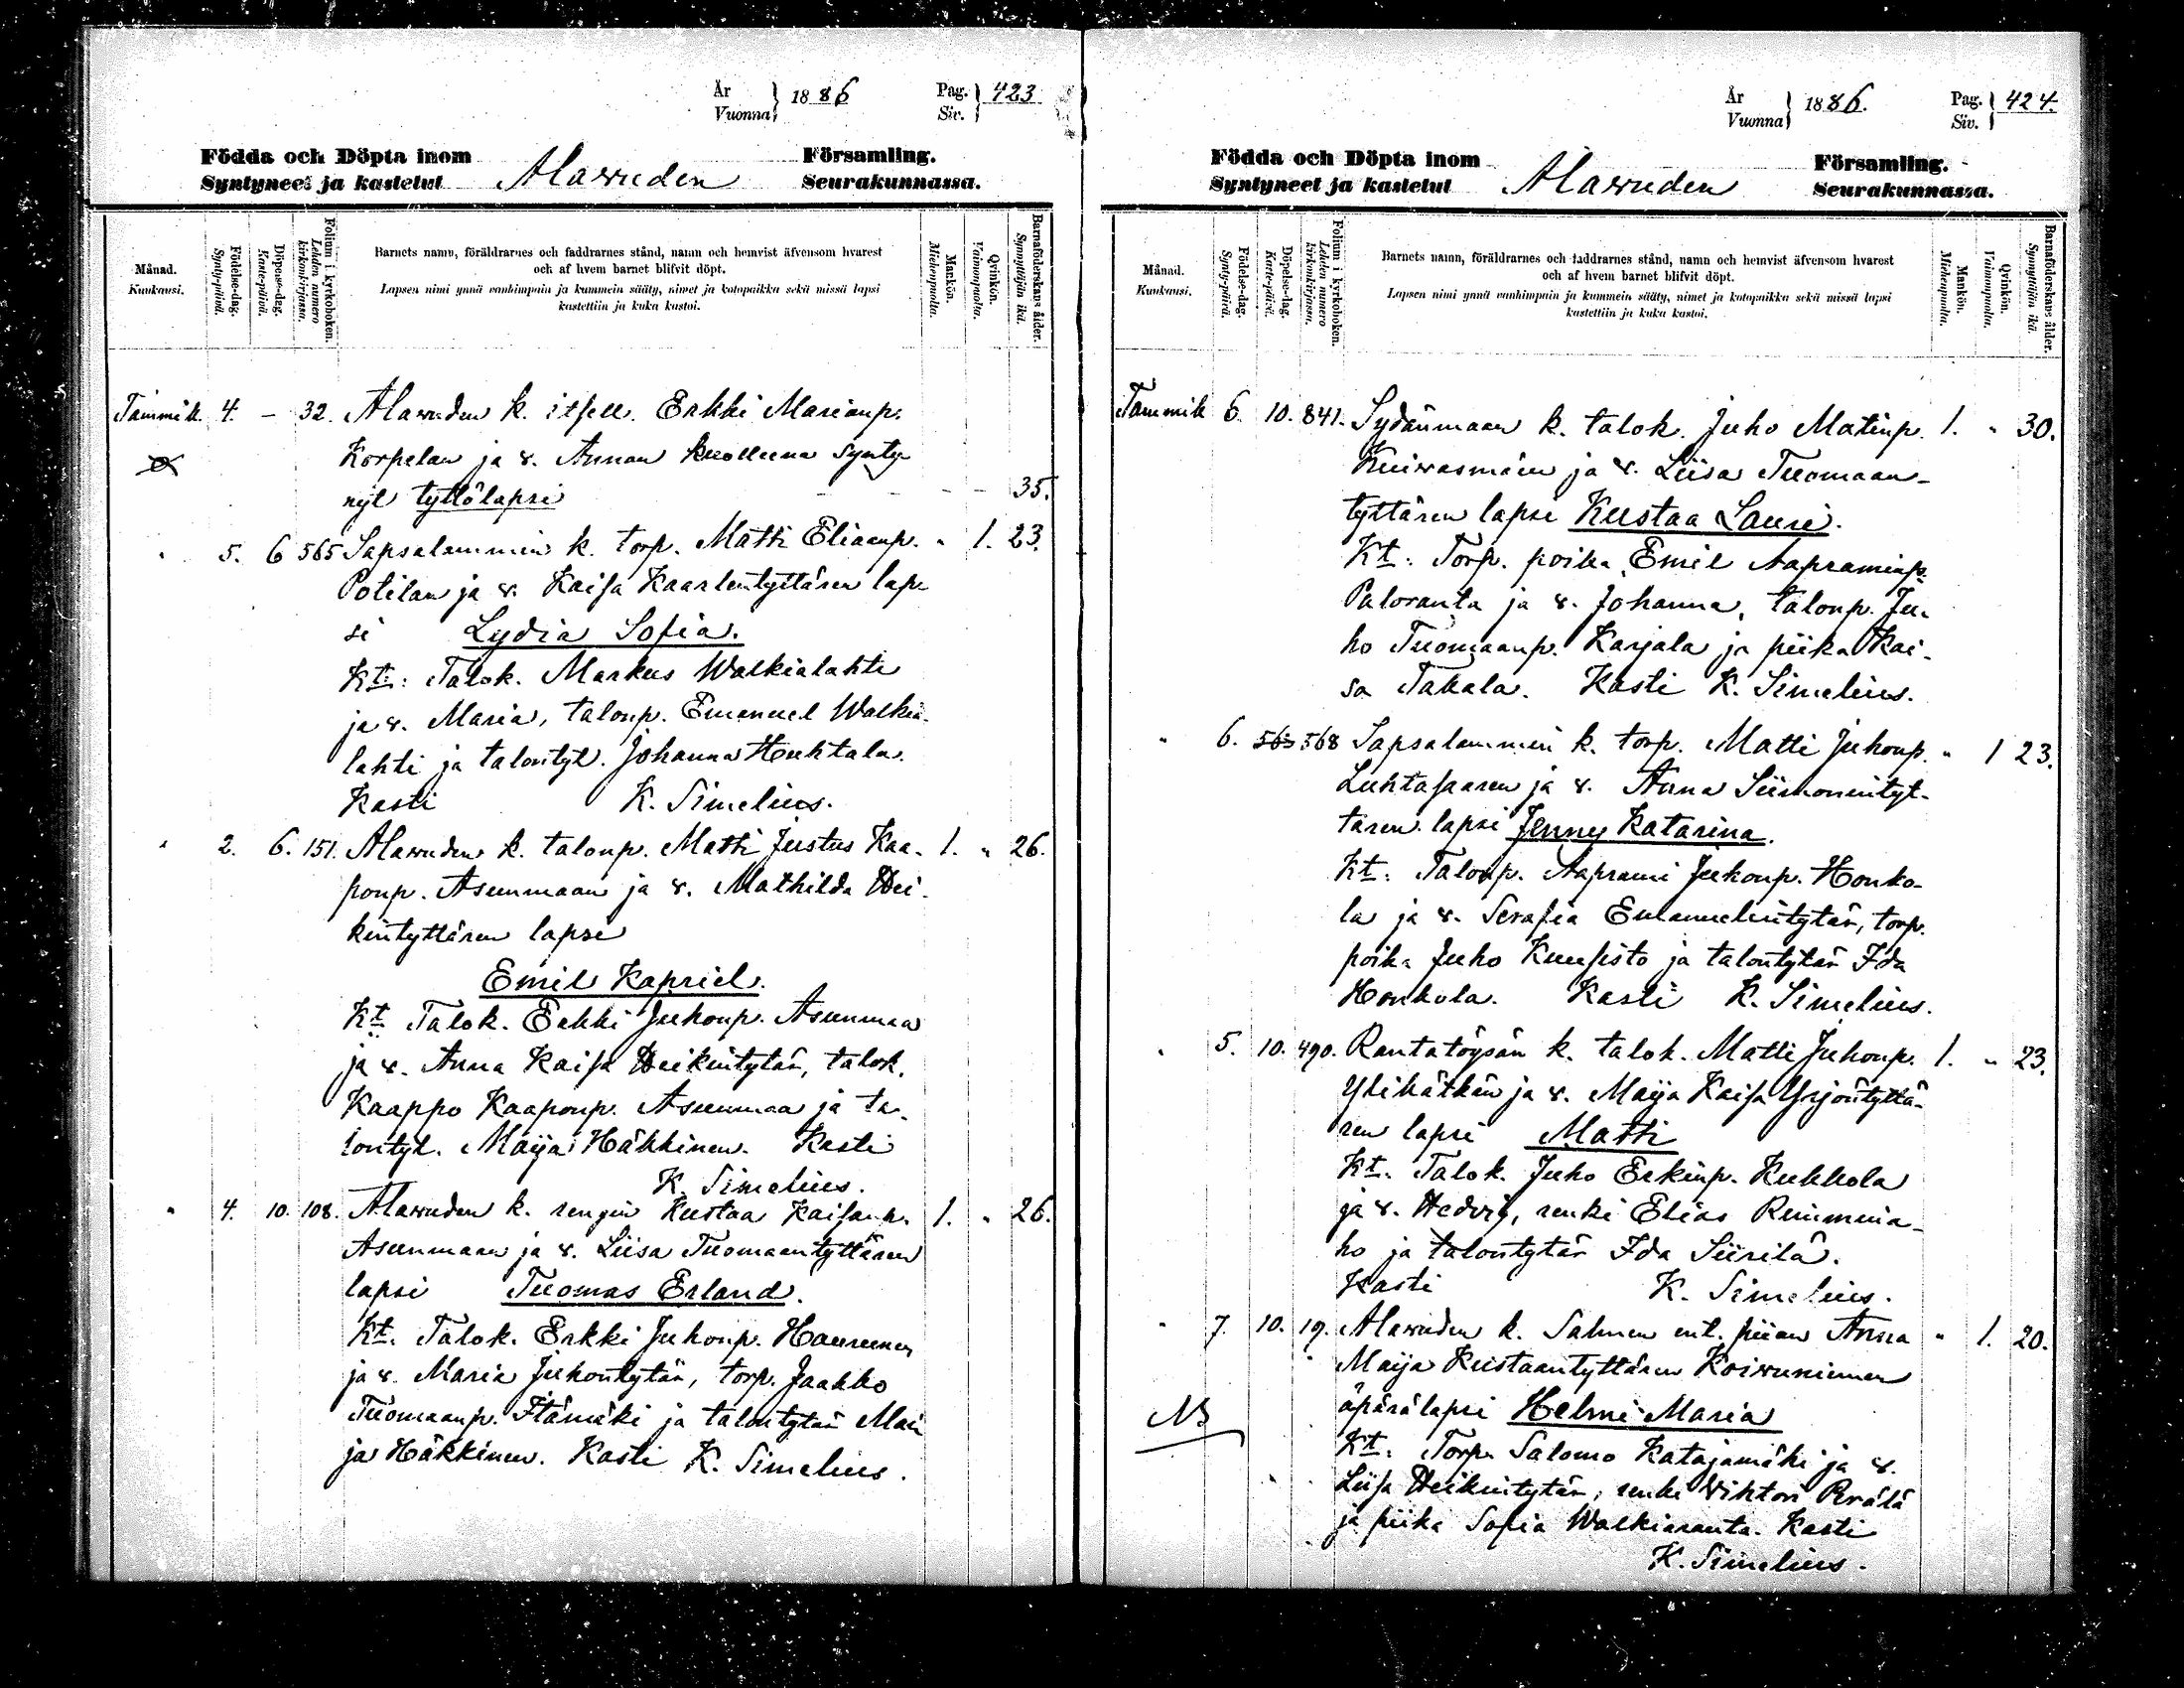 År
Vuonna
1886
Pag.
Siv.
423
Födda och Döpta inom Församling.
Syntyneet ja kastetut Alawuden Seurakunnassa.
Månad.
Kuukausi.
Födelse-dag.
Synty-päivä.
Döpelse-dag.
Kaste-päivä.
Folium i kyrkoboken.
Lehden numero
kirkonkirjassa.
Barnets namn, föräldrarnes och faddrarnes stånd, namn och hemvist äfvensom hvarest
och af hvem barnet blifvit döpt.
Lapsen nimi ynnä vanhimpain ja kummein sääty, nimet ja kotopaikka sekä missä lapsi
kastettiin ja kuka kastoi.
Mankön.
Miehenpuolta.
Qvinkön.
Vaimonpuolta.
Barnaföderskans ålder.
Synnyttäjän ikä.
Tammik. 4. – 32. Alawuden k. itsell. Erkki Marianp.
Korpelan ja v. Annan kuolleena synty-
nyt tyttölapsi - - - 35.
" 5. 6 565 Sapsalammin k. torp. Matti Eliaanp. " 1. 23.
Potilan ja v. Kaisa Kaarlentyttären lap-
si Lydia Sofia.
Kt: Talok. Markus Walkialahti
ja v. Maria, talonp. Emanuel Walkia-
lahti ja talontyt. Johanna Huhtala.
Kasti K. Simelius.
" 2. 6. 151. Alawuden k. talonp. Matti Justus Kaa- 1. " 26.
ponp. Asunmaan ja v. Mathilda Hei-
kintyttären lapsi
Emil Kapriel.
Kt: Talok. Erkki Juhonp. Asunmaa
ja v. Anna Kaisa Heikintytär, talok.
Kaappo Kaaponp. Asunmaa ja ta-
lontyt. Maija Häkkinen. Kasti
K. Simelius.
" 4. 10. 108. Alawuden k. rengin Kustaa Kaisanp. 1. " 26.
Asunmaan ja v. Liisa Tuomaantyttären
lapsi Tuomas Erland.
Kt: Talok. Erkki Juhonp. Haurunen
ja v. Maria Juhontytär, torp. Jaakko
Tuomaanp. Itämäki ja talontytär Mai-
ja Häkkinen. Kasti K. Simelius.
År
Vuonna
1886.
Pag.
Siv.
424.
Födda och Döpta inom Församling.
Syntyneet ja kastetut Alawuden Seurakunnassa.
Månad.
Kuukausi.
Födelse-dag.
Synty-päivä.
Döpelse-dag.
Kaste-päivä.
Folium i kyrkoboken.
Lehden numero
kirkonkirjassa.
Barnets namn, föräldrarnes och faddrarnes stånd, namn och hemvist äfvensom hvarest
och af hvem barnet blifvit döpt.
Lapsen nimi ynnä vanhimpain ja kummein sääty, nimet ja kotopaikka sekä missä lapsi
kastettiin ja kuka kastoi.
Mankön.
Miehenpuolta.
Qvinkön.
Vaimonpuolta.
Barnaföderskans ålder.
Synnyttäjän ikä.
Tammik 6. 10. 841. Sydänmaan k. talok. Juho Matinp. 1. " 30.
Kuiwasmäen ja v. Liisa Tuomaan-
tyttären lapsi Kustaa Lauri.
Kt: Torp. poika Emil Aapraminp.
Paloranta ja v. Johanna, talonp. Ju-
ho Tuomaanp. Karjala ja piika Kai-
sa Takala. Kasti K. Simelius.
" 6. 565 568 Sapsalammin k. torp. Matti Juhonp. " 1 23.
Luhtasaaren ja v. Anna Siimonintyt-
tären lapsi Jenny Katarina.
Kt: Talonp. Aaprami Juhonp. Honko-
la ja v. Serafia Emanuelintytär, torp.
poika Juho Kuusisto ja talontytär Ida
Honkola. Kasti K. Simelius.
" 5. 10. 490. Rantatöysän k. talok. Matti Juhonp. 1. " 23.
Ylihätkän ja v. Maija Kaisa Yrjöntyttä-
ren lapsi Matti
Kt: Talok. Juho Erkinp. Kukkola
ja v. Hedvig, renki Elias Rinninia-
ho ja talontytär Ida Siirilä.
Kasti K. Simelius.
" 7. 10. 19. Alawuden k. Salmen ent. piian Anna " 1. 20.
Maija Kustaantyttären Koiwuniemen
NB äpärälapsi Helmi Maria
Kt: Torp. Salomo Katajamäki ja v.
Liisa Heikintytär, renki Wihtori Perälä
ja piika Sofia Walkiaranta. Kasti
K. Simelius.